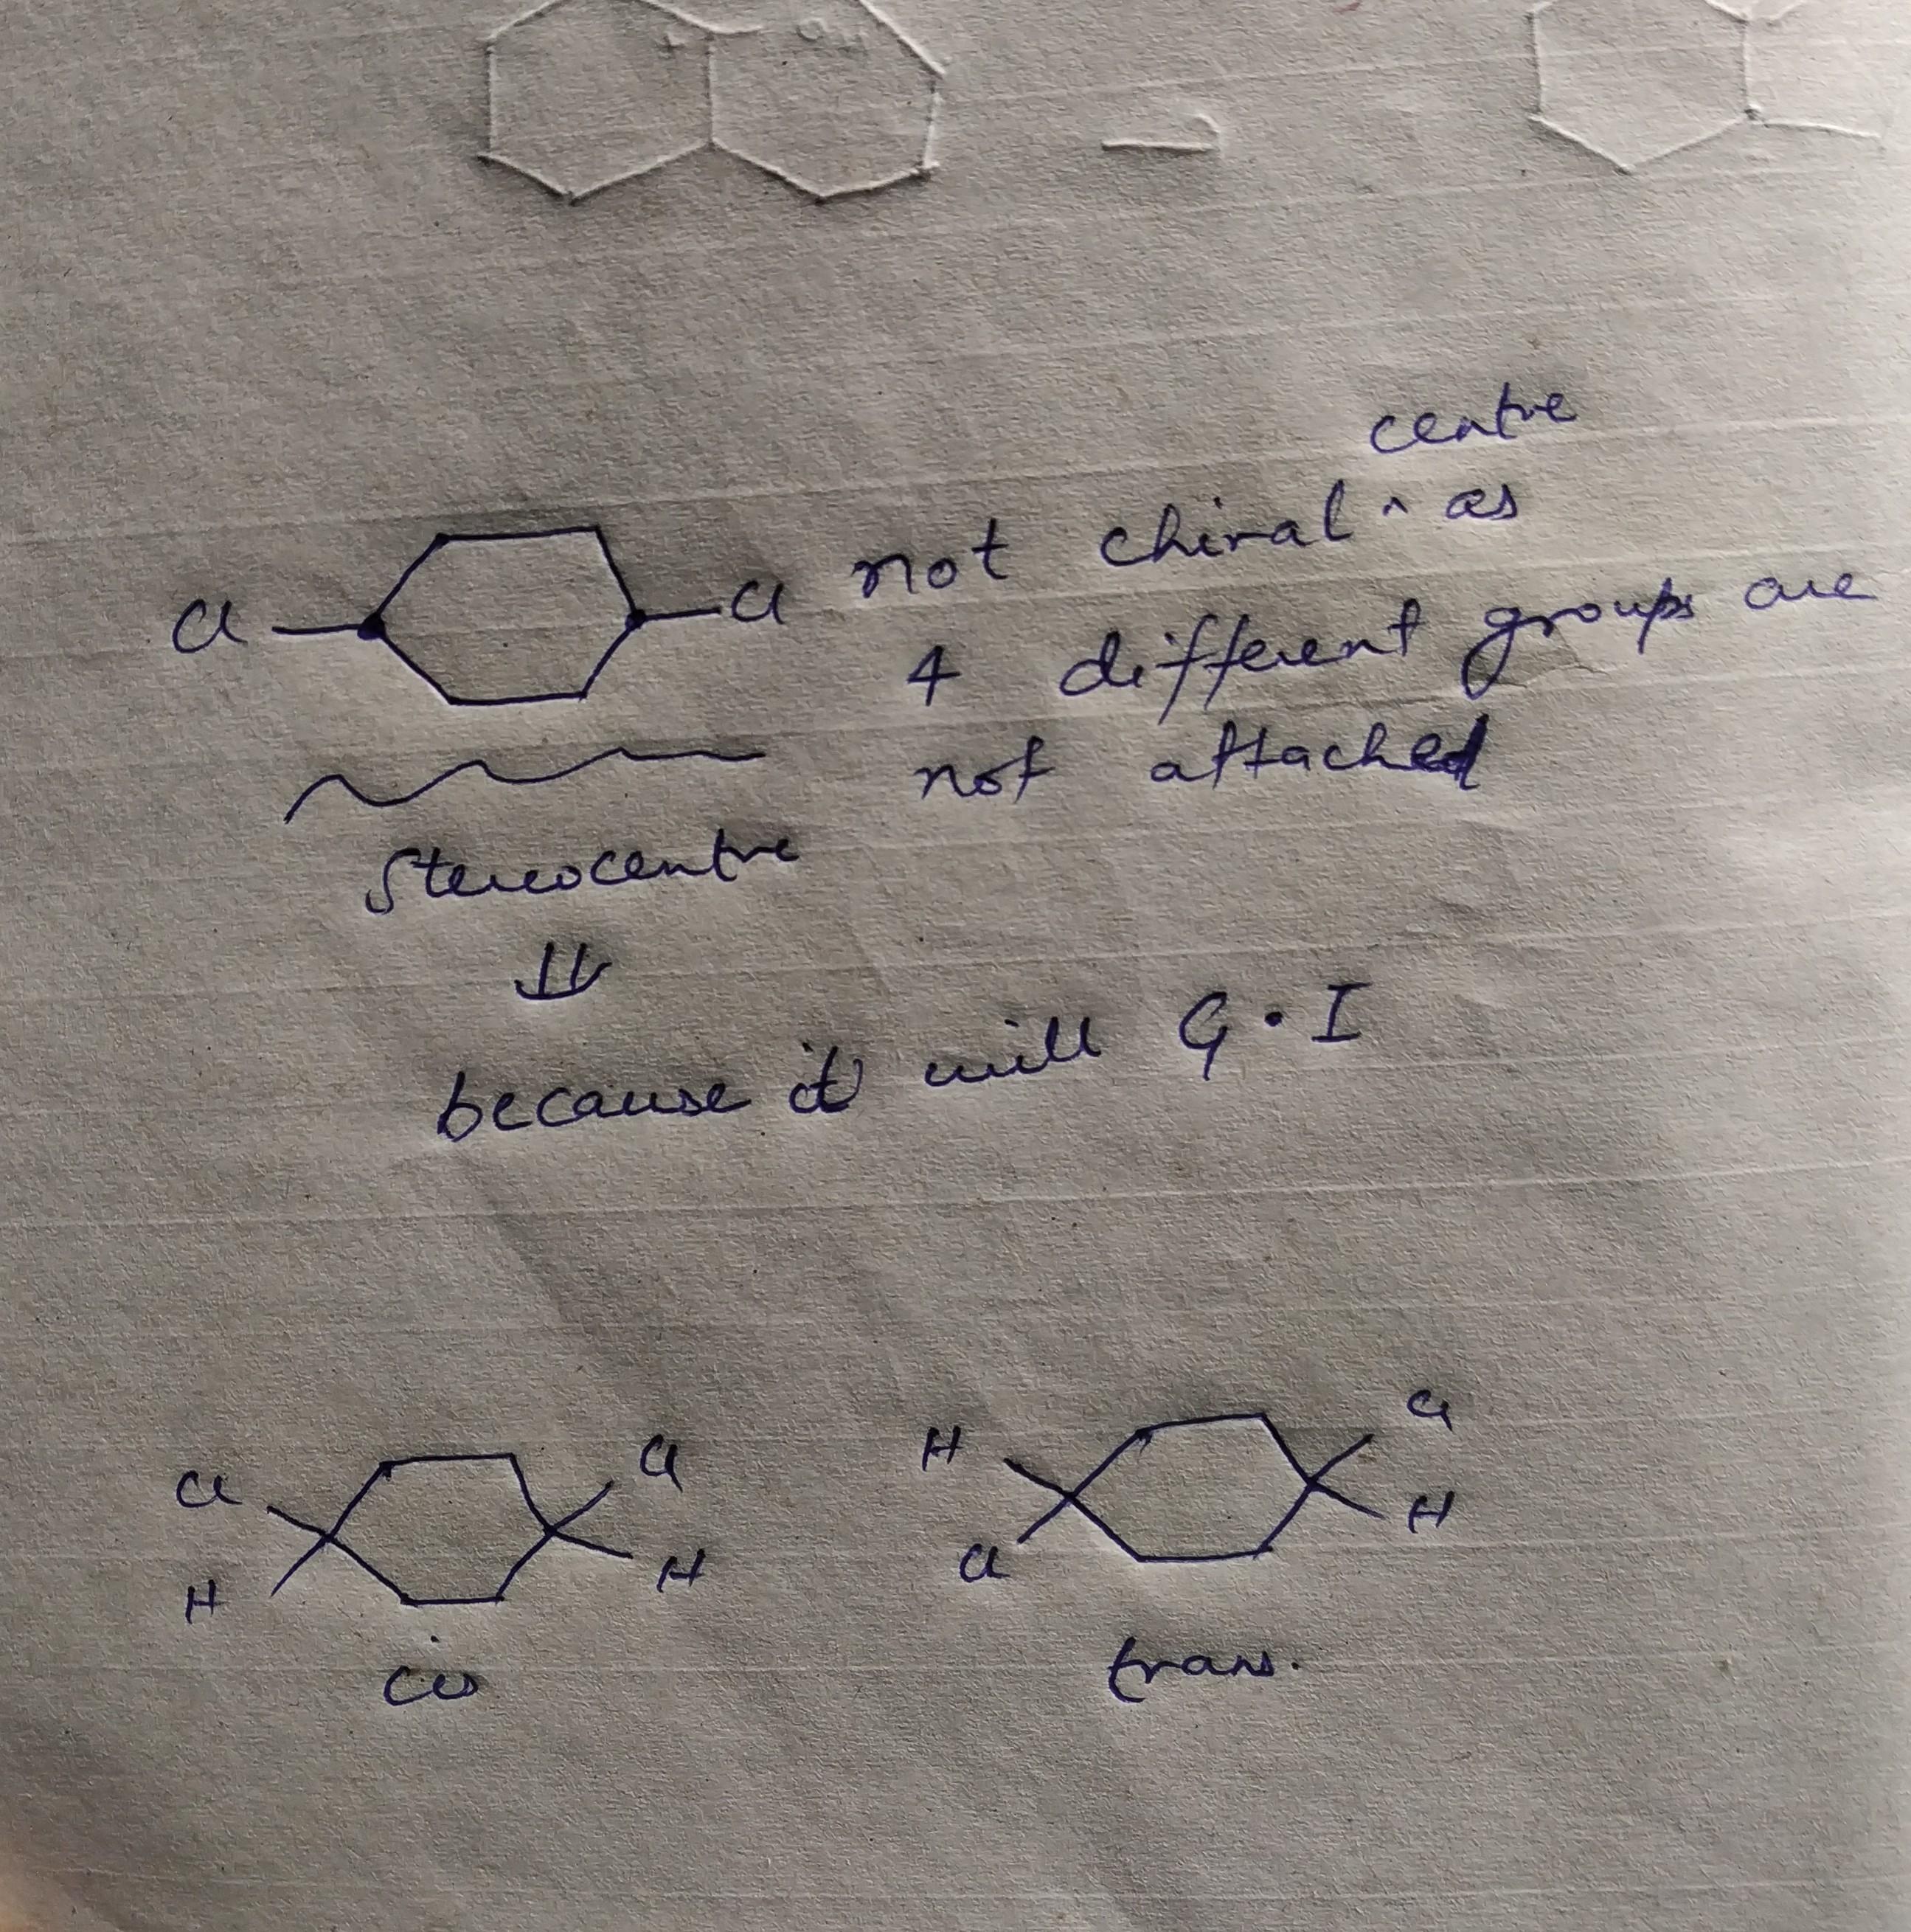 OH
centre
not chiral ^ as
Cl Cl
4 different groups are
not attached
Stereocentre
⇓
because it will G.I
Cl Cl H Cl
H H Cl H
cis trans.